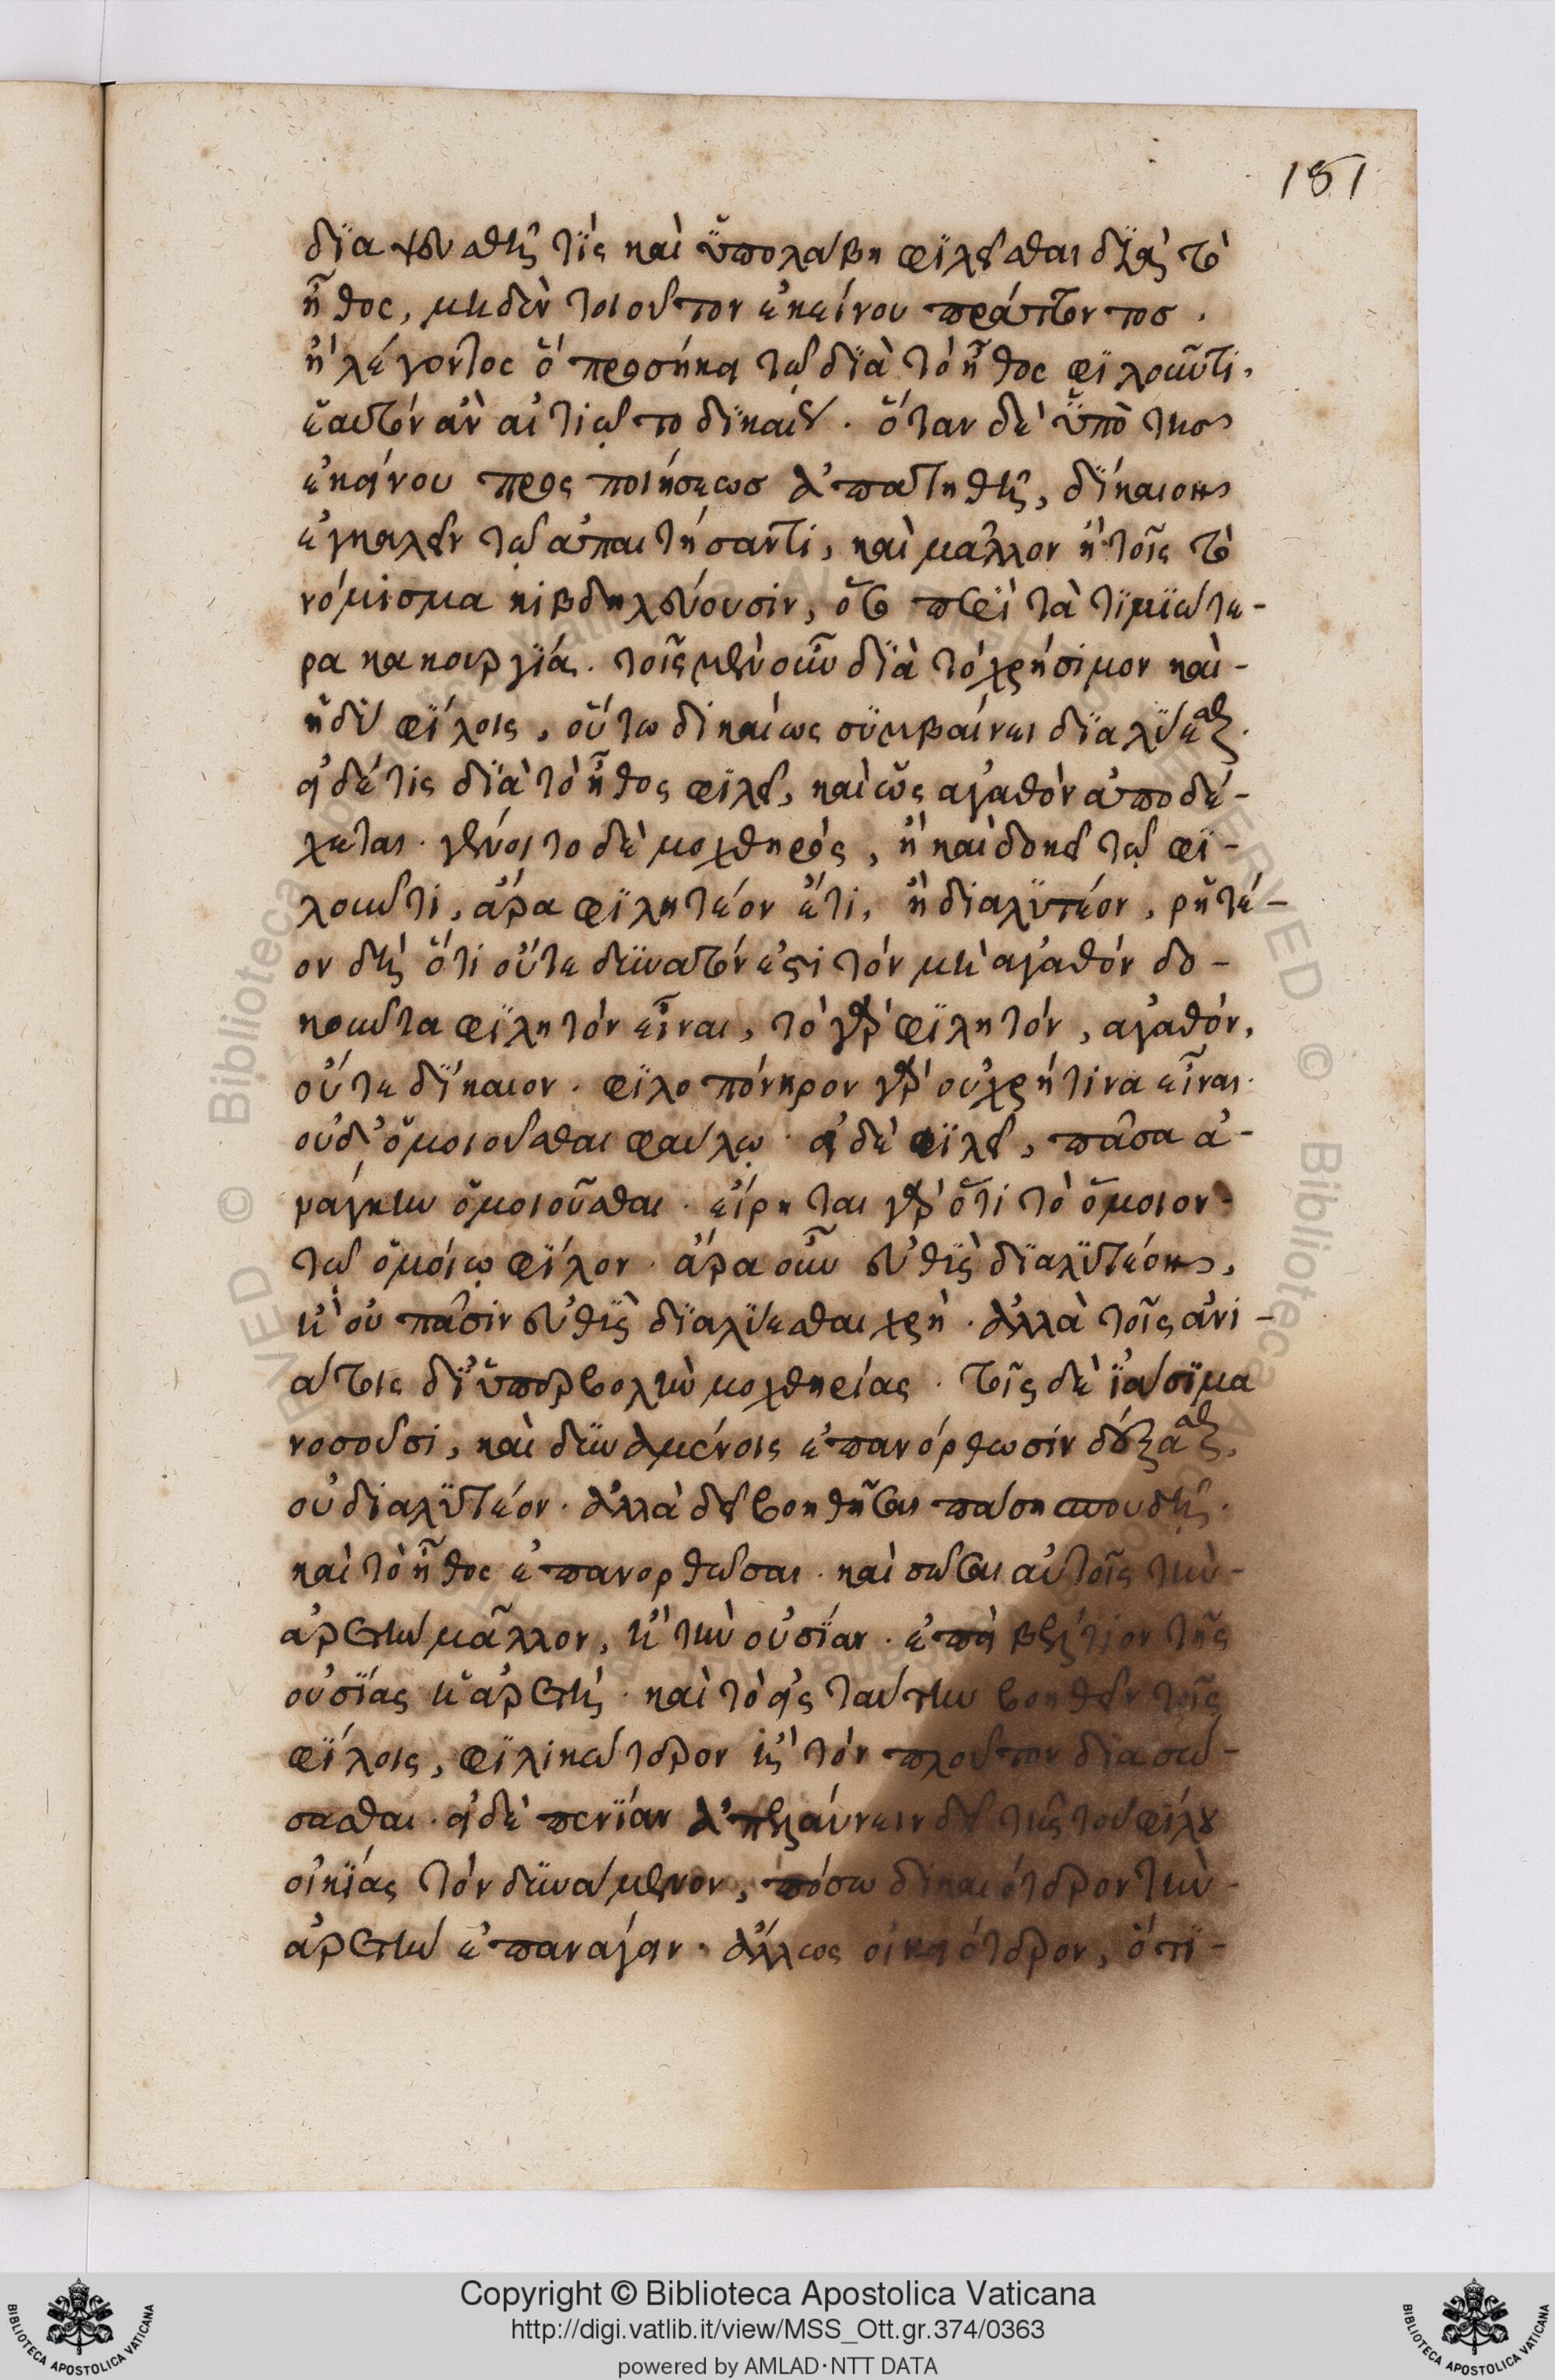 181
διαψευσθῆ τίς καὶ ὑπολάβη φιλεῖσθαι διὰ τὸ
ἦθος, μηδὲν τοιοῦτον ἐκείνου πράττοντος.
ἢ λέγοντος ὃ προσήκει τῶ διὰ τὸ ἦθος φιλοῦντι,
ἑαυτὸν ἂν αἰτιῶτο δικαίως. ὅταν δὲ ὑπὸ τῆς
ἐκείνου προσποιήσεως ἀπατηθῆ, δίκαιον
ἐγκαλεῖν τῶ ἀπατήσαντι, καὶ μᾶλλον ἢ τοῖς τὸ
νόμισμα κιβδηλεύουσιν, ὅσω περὶ τὰ τιμιώτε-
ρα κακουργία. τοῖς μὲν οὖν διὰ τὸ χρήσιμον καὶ-
ἡδὺ φίλοις, οὕτω δικαίως συμβαίνει διαλύεσθαι.
εἰ δέ τις διὰ τὸ ἦθος φιλεῖ, καὶ ὡς ἀγαθὸν ἀποδέ-
χεται. γένοιτο δὲ μοχθηρός, ἢ καὶ δοκεῖ τῶ φι-
λοῦντι, ἆρα φιλητέον ἔτι, ἢ διαλυτέον, ῥητέ-
ον δὴ ὅτι οὔτε δυνατόν ἐστι τὸν μὴ ἀγαθὸν δο-
κοῦντα φιλητὸν εἶναι, τὸ γὰρ φιλητόν, ἀγαθόν,
οὔτε δίκαιον. φιλοπόνηρον γὰρ οὐ χρή τινα εἶναι.
οὐδ' ὁμοιοῦσθαι φαύλω. εἰ δὲ φιλεῖ, πᾶσα ἀ-
νάγκη ὁμοιοῦσθαι. εἴρηται γὰρ ὅτι τὸ ὅμοιον-
τῶ ὁμοίω φίλον. ἆρα οὖν εὐθὺς διαλυτέον,
ἢ οὐ πᾶσιν εὐθὺς διαλύεσθαι χρή. ἀλλὰ τοῖς ἀνι-
άτοις δι' ὑπερβολὴν μοχθηρίας. τοῖς δὲ ἰάσιμα
νοσοῦσι, καὶ δυναμένοις ἐπανόρθωσιν δέξασθαι,
οὐ διαλυτέον. ἀλλὰ δεῖ βοηθῆσαι πάση σπουδῆ.
καὶ τὸ ἦθος ἐπανορθῶσαι. καὶ σῶσαι αὐτοῖς τὴν-
ἀρετὴν μᾶλλον, ἢ τὴν οὐσίαν. ἐπεὶ βέλτιον τῆς
οὐσίας ἡ ἀρετή. καὶ τὸ εἰς ταύτην βοηθεῖν τοῖς
φίλοις, φιλικώτερον ἢ τὸν πλοῦτον διασώ-
σασθαι. εἰ δὲ πενίαν ἀπελαύνειν δεῖ τῆς τοῦ φίλου
οἰκίας τὸν δυνάμενον, πόσω δικαιότερον τὴν-
ἀρετὴν ἐπανάγειν. ἄλλως οἰκειότερον, ὅτι-
Copyright © Biblioteca Apostolica Vaticana
http://digi.vatlib.it/view/MSS_Ott.gr.374/0363
powered by AMLAD·NTT DATA